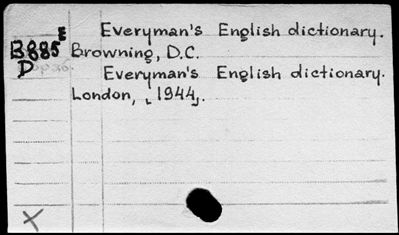 Everyman's English dictionary.
E
B885 Browning, D.C.
D Everyman's English dictionary.
London, [1944].
X